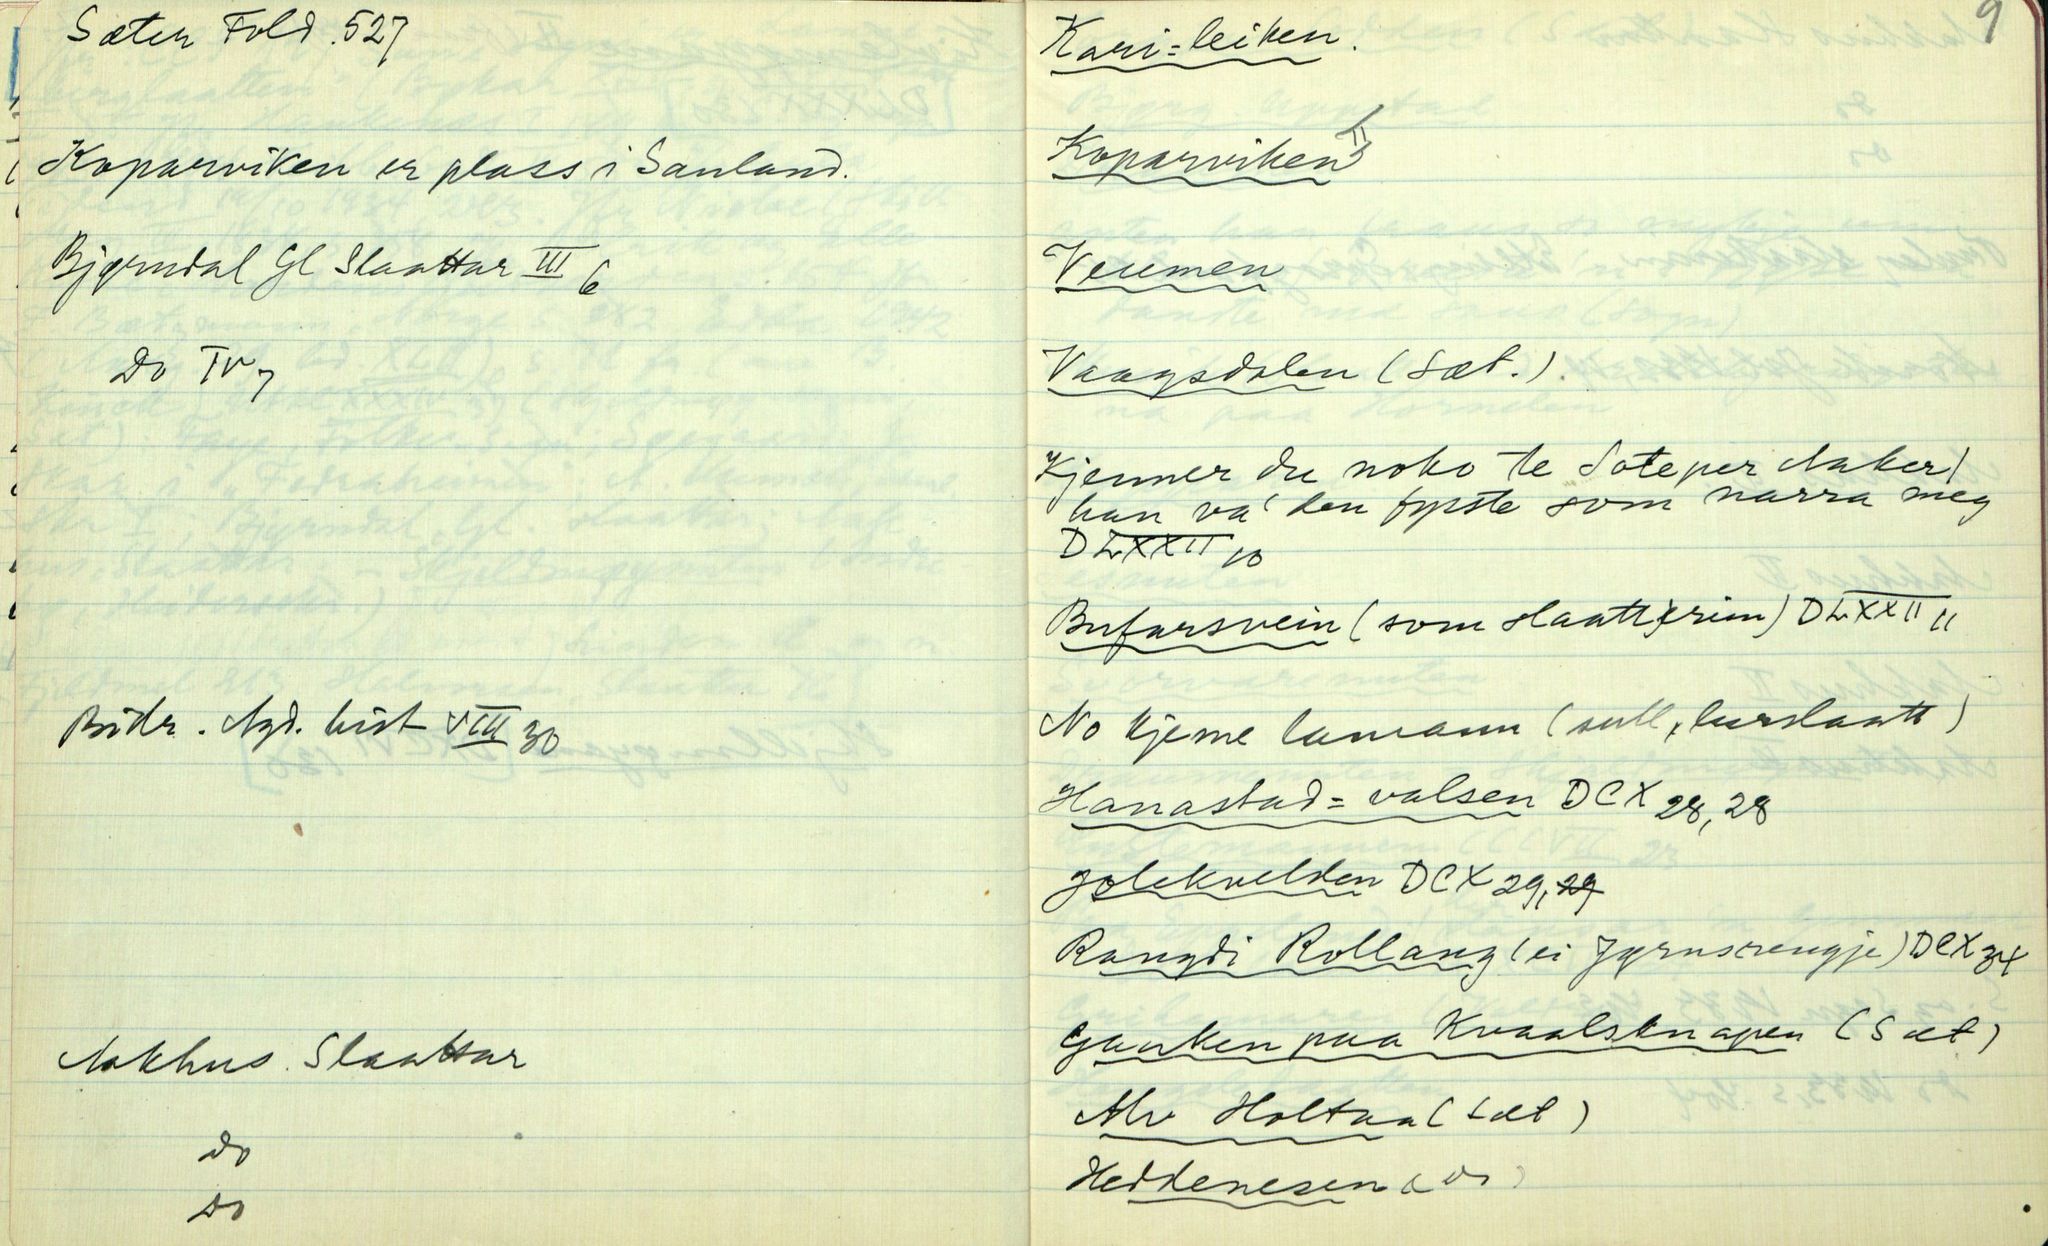 Sæter Fold. 527
Koparviken er plass i Sauland.
Bjørndal Gl Slaattar III 6
Do IV 7
Bidr. Agd. hist VIII 30
Aakhus. Slaattar
Do
Do
9
Kari-leiken.
Koparviken II
Veumen
Vaagsdalen (Sæt.)
Kjenner du noko te Soteper Aaker
han va' den fyrste som narra meg
DLXXII 10
Bufarsvein (som slaatterim) DLXXII 11
No kjeme lumann (sull, lurslaatt)
Hanastad-valsen DCX 28, 28
Jolekvelden DCX 29, 29
Rangdi Rollang (ei Jørnsrengje) DCX 34
Gauken paa Kvaalsknapen (Sæt)
Alv Holtaa (Sæt)
Heddenesen (Do)